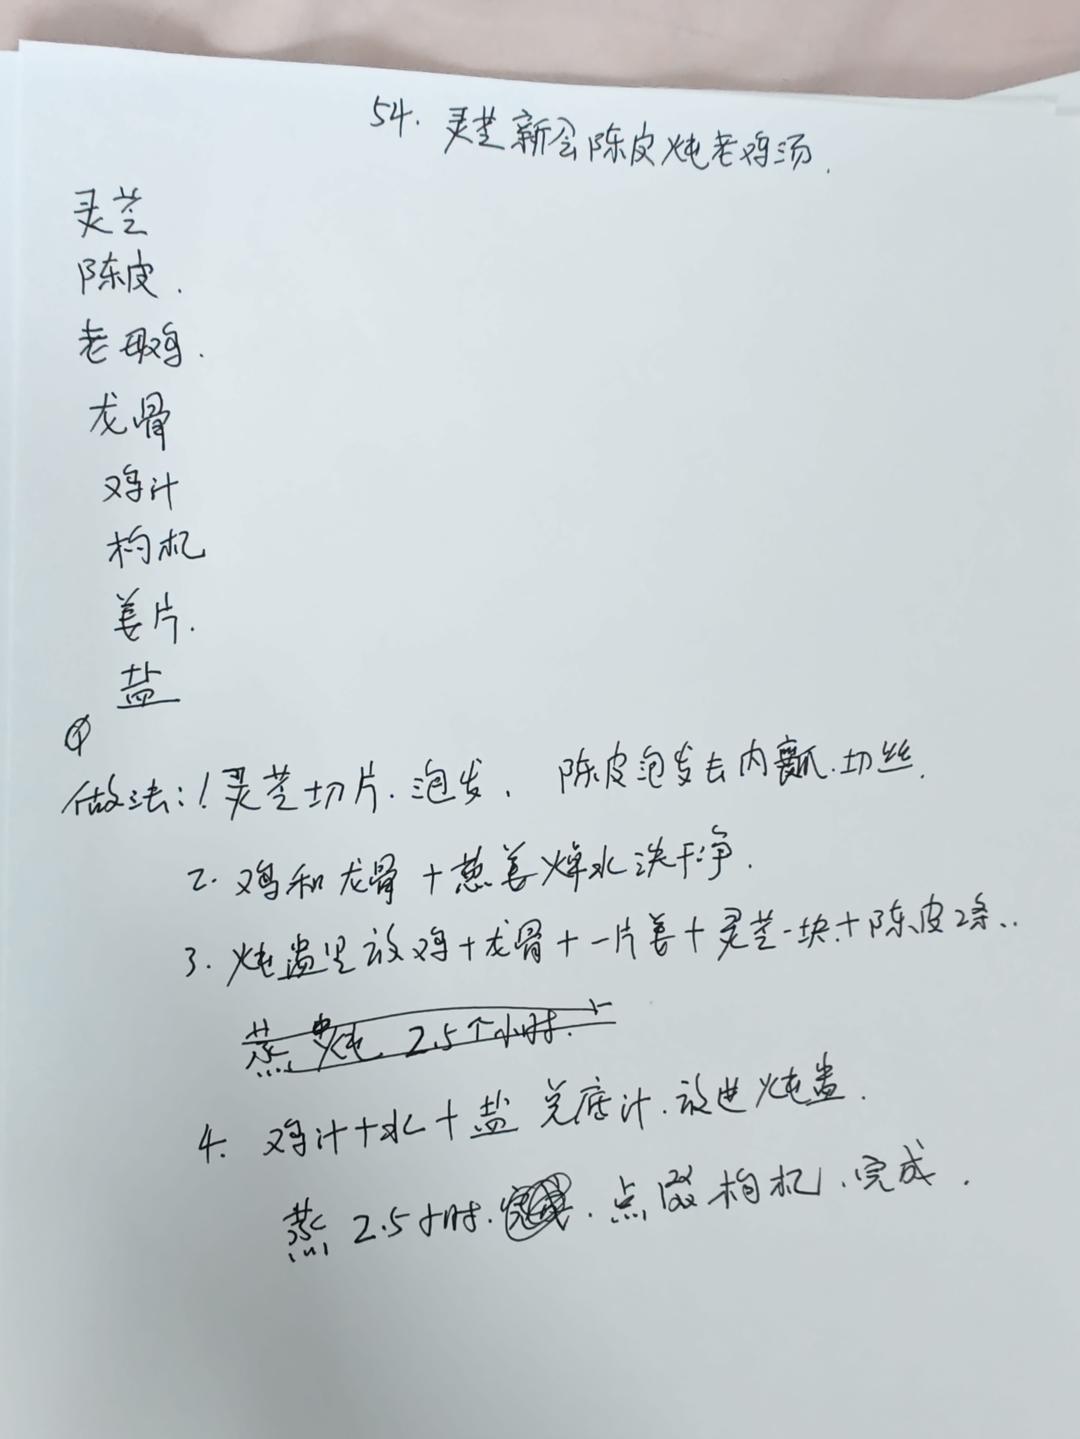 54. 灵芝新会陈皮炖老鸡汤.
灵芝
陈皮.
老母鸡.
龙骨
鸡汁
枸杞
姜片.
盐
做法:1灵芝切片.泡发. 陈皮泡发去内瓤.切丝.
2. 鸡和龙骨+葱姜焯水洗干净.
3. 炖盅里放鸡+龙骨+一片姜+灵芝一块+陈皮2条..
蒸 炖 2.5个小时.
4. 鸡汁+水+盐 兑底汁.放进炖盅.
蒸 2.5小时.完成.点缀枸杞.完成.